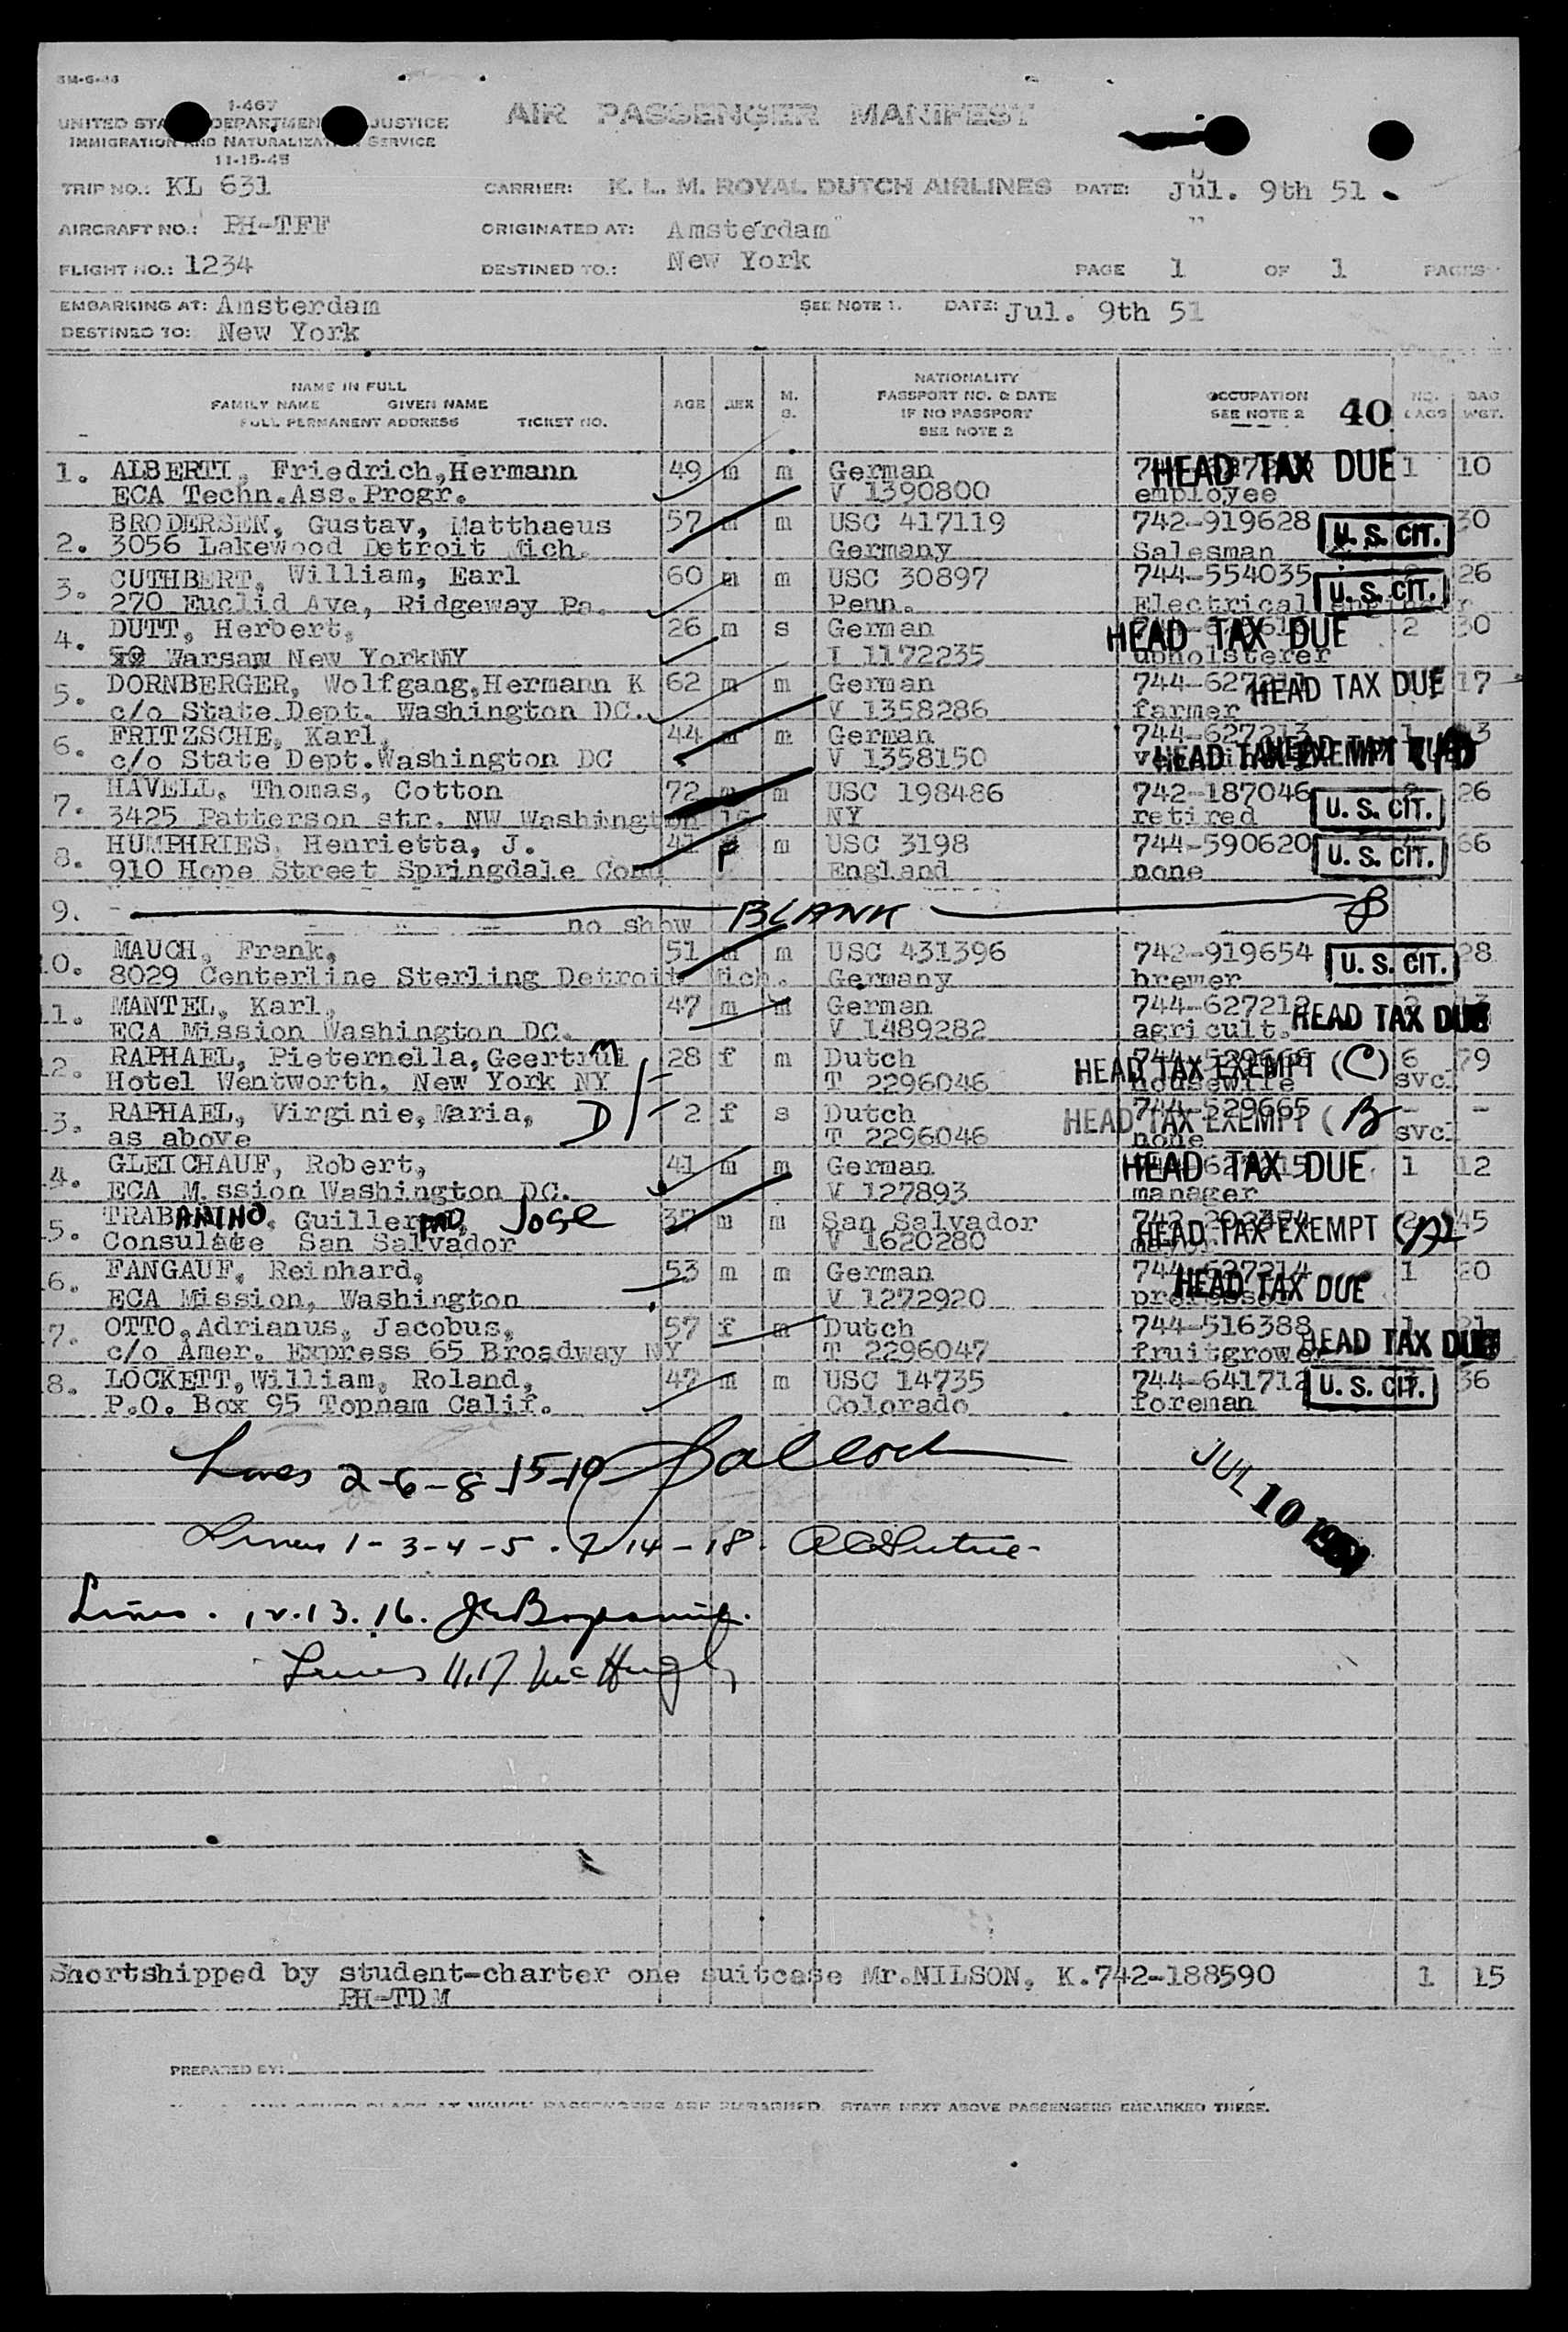 1-467
UNITED STA DEPARTMEN JUSTICE
IMMIGRATION AND NATURALIZAT SERVICE
11-15-45
AIR PASSENGER MANIFEST
TRIP NO.: KL 631 CARRIER: K. L. M. ROYAL DUTCH AIRLINES DATE: Jul. 9th 51
AIRCRAFT NO.: PH-TFF ORIGINATED AT: Amsterdam "
FLIGHT NO.: 1234 DESTINED TO.: New York PAGE 1 OF 1 PAGES
EMBARKING AT: Amsterdam SEE NOTE 1. DATE: Jul. 9th 51
DESTINED TO: New York
NAME IN FULL
FAMILY NAME GIVEN NAME
FULL PERMANENT ADDRESS TICKET NO.
AGE SEX M. S.
NATIONALITY
PASSPORT NO. & DATE
IF NO PASSPORT
SEE NOTE 2
OCCUPATION
SEE NOTE 2 40
NO. BAGS BAG WGT.
1. ALBERTI, Friedrich,Hermann 49 m m German HEAD TAX DUE 1 10
ECA Techn.Ass.Progr. V 1390800 employee
BRODERSEN, Gustav, Matthaeus 57 m m USC 417119 742-919628 U. S. CIT. 30
2. 3056 Lakewood Detroit Mich. Germany Salesman
3. CUTHBERT, William, Earl 60 m m USC 30897 744-554035 U. S. CIT. 26
270 Euclid Ave, Ridgeway Pa. Penn. Electrical engineer
4. DUTT, Herbert, 26 m s German HEAD TAX DUE 2 30
Warsaw New YorkNY I 1172235 upholsterer
5. DORNBERGER, Wolfgang,Hermann K 62 m m German 744-627211 HEAD TAX DUE 17
c/o State Dept. Washington DC. V 1358286 farmer
6. FRITZSCHE, Karl, 44 m m German 744-627213 1
c/o State Dept.Washington DC V 1358150 HEAD TAX EXEMPT
7. HAVELL, Thomas, Cotton 72 m m USC 198486 742-187046 U. S. CIT. 26
3425 Patterson str. NW Washington 15 NY retired
8. HUMPHRIES, Henrietta, J. 41 F m USC 3198 744-590620 U. S. CIT. 66
910 Hope Street Springdale Conn England none
9. no show BLANK
10. MAUCH, Frank, 51 m m USC 431396 742-919654 U. S. CIT. 28
8029 Centerline Sterling Detroit Mich. Germany brewer
11. MANTEL, Karl, 47 m m German 744-627212 HEAD TAX DUE
ECA Mission Washington DC. V 1489282 agricult.
12. RAPHAEL, Pieternella,Geertrui 28 f m Dutch 744-529666 HEAD TAX EXEMPT (C) 6 79
Hotel Wentworth, New York NY T 2296046 housewife svc.
13. RAPHAEL, Virginie,Maria, D 2 f s Dutch 744-529665 HEAD TAX EXEMPT (B - -
as above T 2296046 none svc.
14. GLEICHAUF, Robert, 41 m m German HEAD TAX DUE 1 12
ECA M.ssion Washington DC. V 127893 manager
15. TRABANINO, Guillermo, Jose 37 m m San Salvador HEAD TAX EXEMPT 2 45
Consulate San Salvador V 1620280
16. FANGAUF, Reinhard, 53 m m German 744-627214 HEAD TAX DUE 1 20
ECA Mission, Washington V 1272920 professor
17. OTTO,Adrianus, Jacobus, 57 f m Dutch 744-516388 HEAD TAX DUE 1 21
c/o Amer. Express 65 Broadway NY T 2296047 fruitgrower
18. LOCKETT,William, Roland, 47 m m USC 14735 744-641712 U. S. CIT. 36
P.O. Box 95 Topnam Calif. Colorado foreman
Lines 2-6-8-15-10
JUL 10 1951
Lines 1-3-4-5-7-14-18.
Lines. 12.13.16.
Lines 11.17 McHugh
Shortshipped by student-charter one suitcase Mr.NILSON, K.742-188590 1 15
PH-TDM
PREPARED BY:
PLACE AT WHICH PASSENGERS ARE EMBARKED. STATE NEXT ABOVE PASSENGERS EMBARKED THERE.